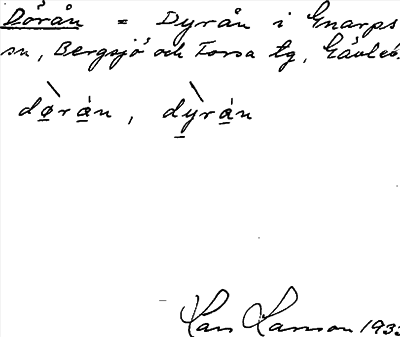 Dörån = Dyrån i Gnarps
sn, Bergsjö och Forsa tg, Gävleb.
dø̠̀rå̠n, dỳ̠rå̠n
Hans Hanson 1933